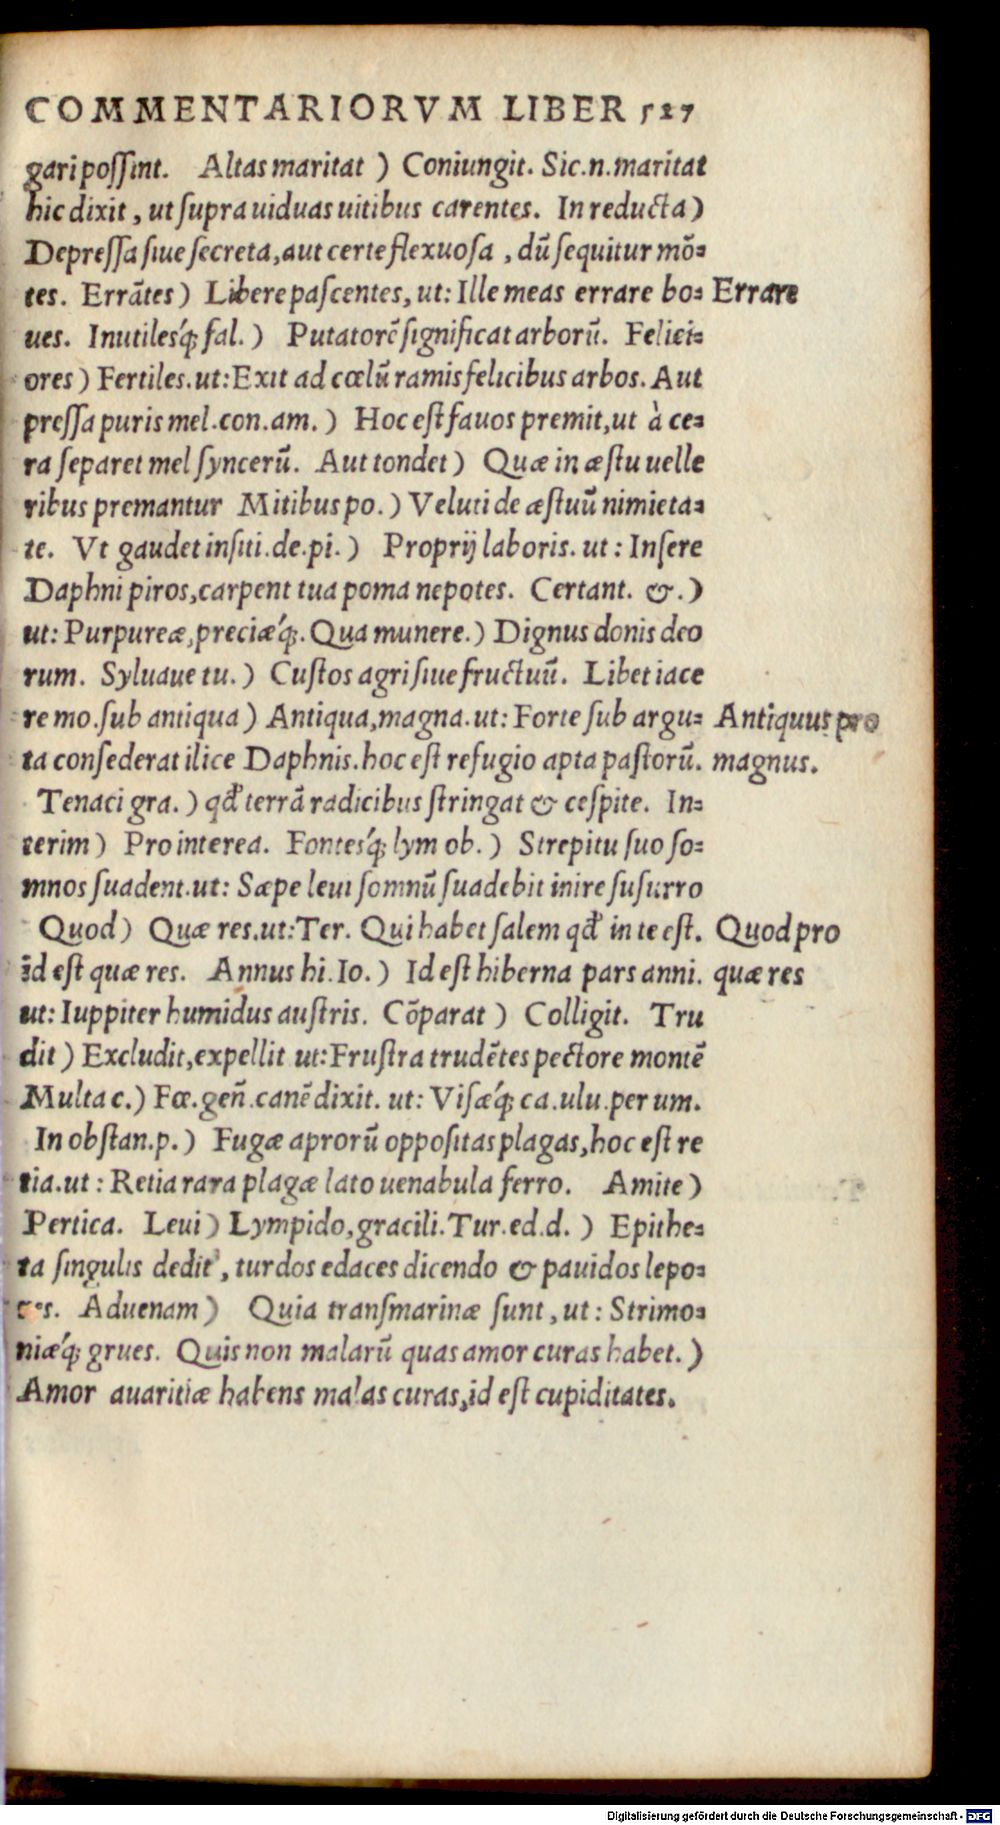 COMMENTARIORVM LIBER 527
gari poſſint. Altas maritat ) Coniungit. Sic.n.maritat
hic dixit, ut ſupra uiduas uitibus carentes. In reducta )
Depreſſa ſiue ſecreta,aut certe flexuoſa , dū ſequitur mō⸗
tes. Errātes ) Libere paſcentes, ut: Ille meas errare bo⸗ Errare
ues. Inutilesq́; fal. ) Putatorē ſignificat arborū. Felici⸗
ores ) Fertiles.ut:Exit ad cœlū ramis felicibus arbos. Aut
preſſa puris mel.con.am. ) Hoc eſt fauos premit,ut à ce⸗
ra ſeparet mel ſyncerū. Aut tondet ) Quæ in æſtu uelle
ribus premantur Mitibus po. ) Veluti de æſtuū nimieta⸗
te. Vt gaudet inſiti.de.pi. ) Proprij laboris. ut : Inſere
Daphni piros,carpent tua poma nepotes. Certant. &. )
ut: Purpureæ,preciæq́;. Qua munere. ) Dignus donis deo
rum. Syluaue tu. ) Cuſtos agri ſiue fructuū. Libet iace
re mo.ſub antiqua ) Antiqua,magna.ut: Forte ſub argu⸗ Antiquus pro
ta conſederat ilice Daphnis.hoc eſt refugio apta paſtorū. magnus.
Tenaci gra. ) qđ terrā radicibus ſtringat & ceſpite. In⸗
terim ) Pro interea. Fontesq́; lym ob. ) Strepitu ſuo ſo⸗
mnos ſuadent.ut: Sæpe leui ſomnū ſuadebit inire ſuſurro
Quod ) Quæ res.ut:Ter. Qui habet ſalem qđ in te eſt. Quod pro
id eſt quæ res. Annus hi.Io. ) Id eſt hiberna pars anni. quæ res
ut: Iuppiter humidus auſtris. Cōparat ) Colligit. Tru
dit ) Excludit,expellit ut:Fruſtra trudētes pectore montē
Multa c. ) Fœ.geñ.canē dixit. ut: Viſæq́; ca.ulu.per um.
In obſtan.p. ) Fugæ aprorū oppoſitas plagas,hoc eſt re
tia.ut : Retia rara plagæ lato uenabula ferro. Amite )
Pertica. Leui ) Lympido,gracili.Tur.ed.d. ) Epithe⸗
ta ſingulis dedit , turdos edaces dicendo & pauidos lepo⸗
res. Aduenam ) Quia tranſmarinæ ſunt , ut : Strimo⸗
niæq́; grues. Quis non malarū quas amor curas habet. )
Amor auaritiæ habens malas curas,id eſt cupiditates.
Digitalisierung gefördert durch die Deutsche Forschungsgemeinschaft - DFG